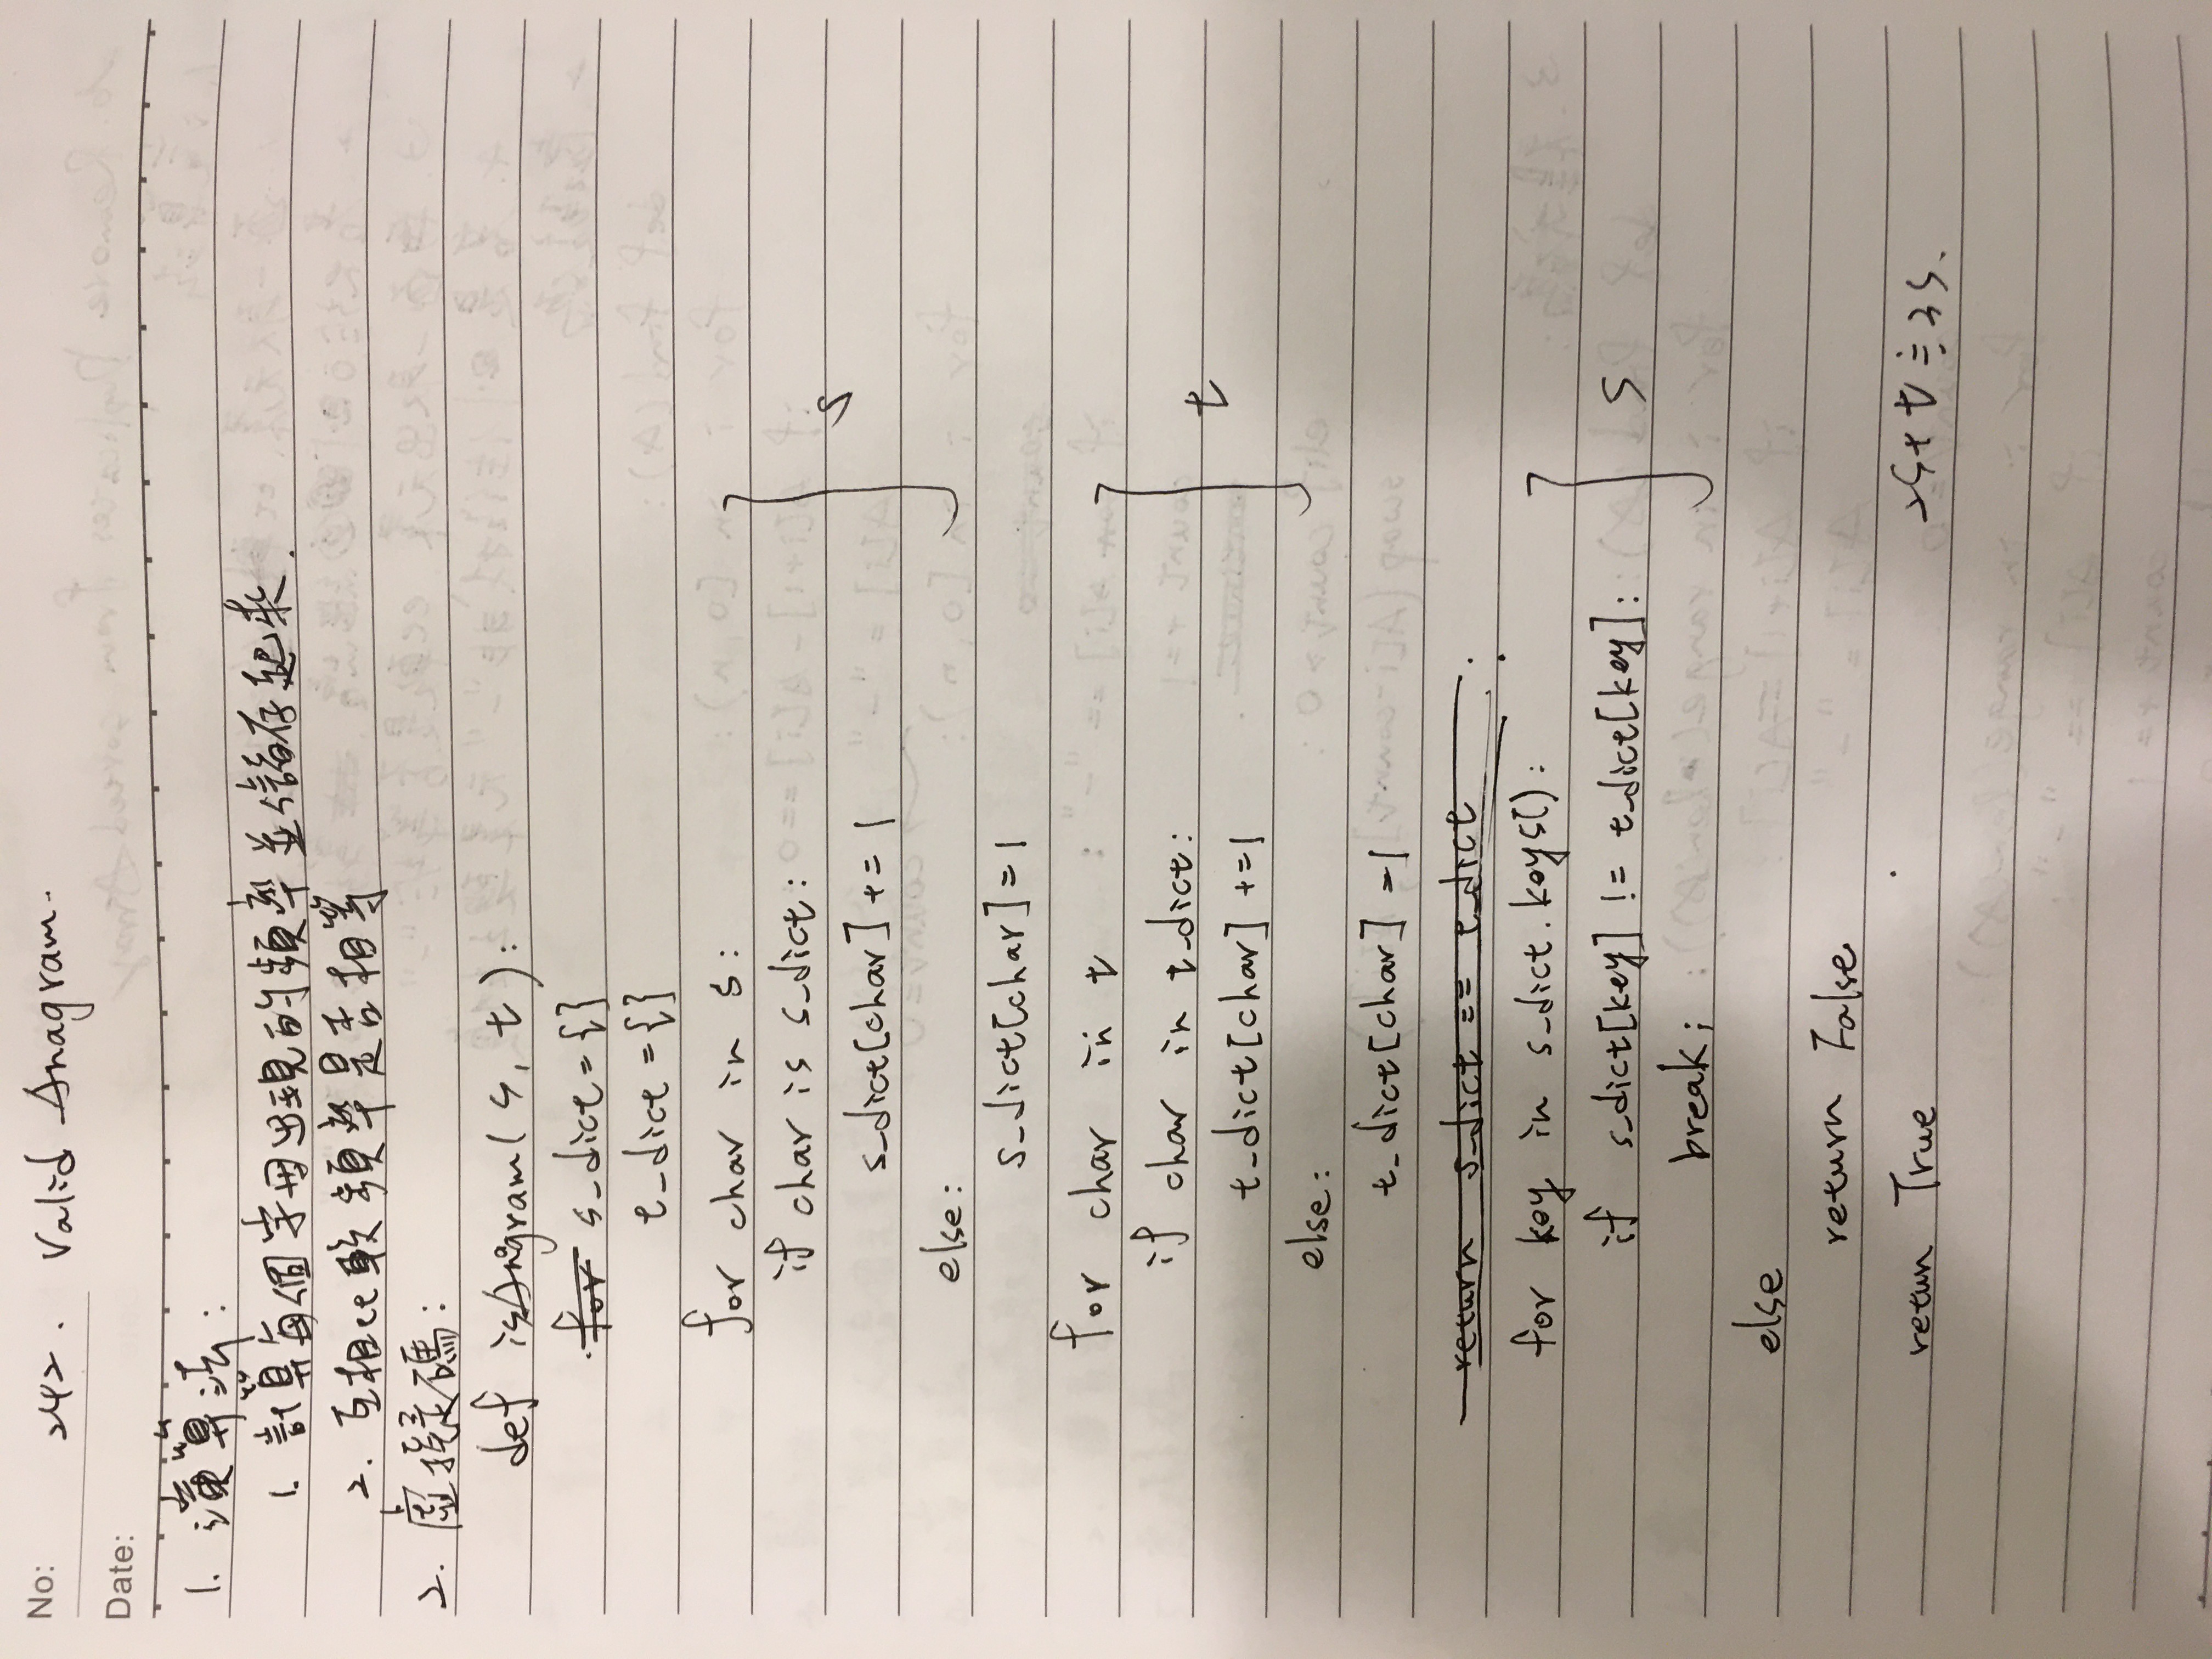 No: 242. Valid Anagram.
Date:
1. 演算法:
1. 計算每個字母出現的頻率並儲存起來.
2. 互相比較頻率是否相等
2. 虛擬碼:
def isAngram(s, t):
for s_dict={}
t_dict={}
for char in s:
if char is s_dict:
s_dict[char] += 1
s
else:
s_dict[char]=1
for char in t
if char in t_dict:
t_dict[char] +=1
t
else:
t_dict[char] =1
return s_dict == t_dict
for key in s_dict.keys():
if s_dict[key] != t_dict[key]:
s
break;
else
return False
retun True
2s+t≒3s.